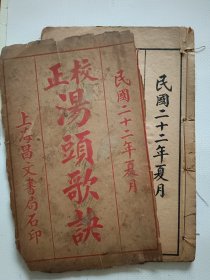 民國二十二年夏月
民國二十二年夏月
校正
湯頭歌訣
上海昌文書局石印